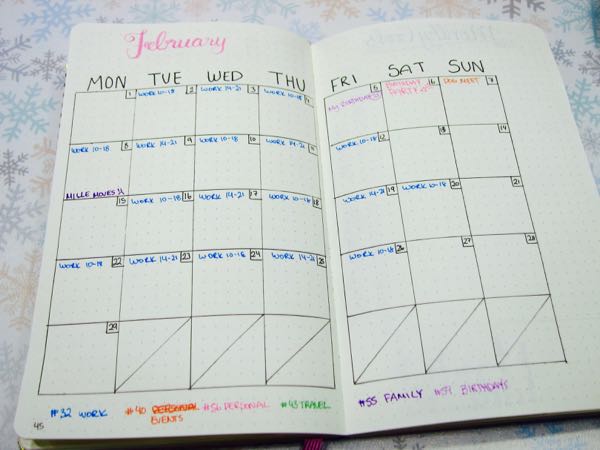 February
MON TUE WED THU FRI SAT SUN
1 WORK 10-18 2 WORK 14-21 3 WORK 10-18 4 MY BIRTHDAY 5 BIRTHDAY 6 DOG MEET 7
PARTY
WORK 10-18 8 WORK 14-21 9 WORK 10-18 10 WORK 14-21 11 WORK 10-18 12 13 14
MILLE MOVES
15 WORK 10-18 16 WORK 14-21 17 WORK 10-18 18 WORK 14-21 19 WORK 10-18 20 21
WORK 10-18 22 WORK 14-21 23 WORK 10-18 24 WORK 14-21 25 WORK 10-18 26 27 28
29
#32 WORK #40 PERSONAL #56 PERSONAL #43 TRAVEL #55 FAMILY #59 BIRTHDAYS
EVENTS
45